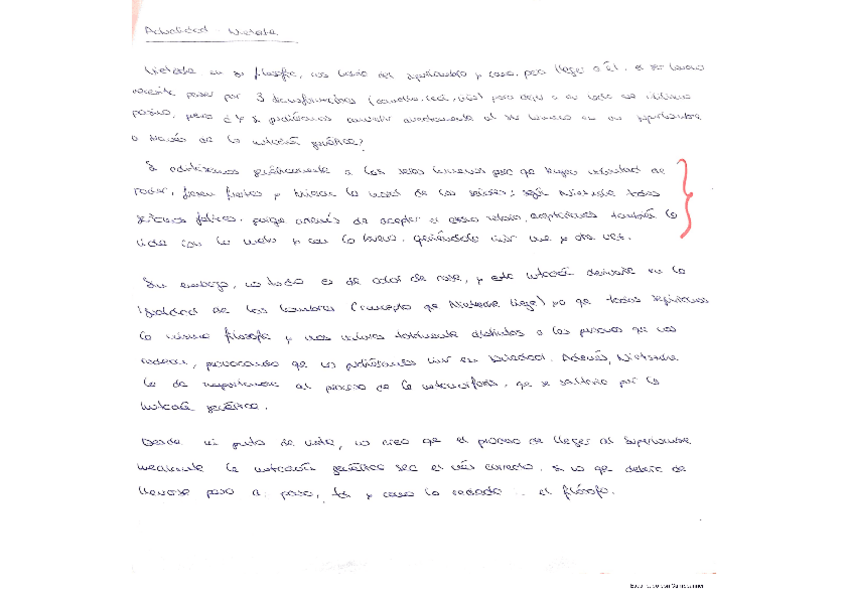 Actualidad - Nietzsche
Nietzsche en su filosofía, nos habla del superhombre y como, para llegar a él, el ser humano
necesita pasar por 3 transformaciones (camello, león, niño) para dejar a un lado nihilismo
pasivo, pero ¿Y si pudiéramos convertir directamente al ser humano en un superhombre
a través de la mutación genética?
Si modificamos genéticamente a los seres humanos para que tengan voluntad de
poder, sean fuertes y tengan la moral de los señores; según Nietzsche todos
seríamos felices, porque además de aceptar el eterno retorno, aceptaríamos también la
vida con lo malo y con lo bueno, queriéndola vivir una y otra vez.
Sin embargo, no todo es de color de rosa, y esta mutación derivaría en la
igualdad de los hombres (concepto que Nietzsche niega) ya que todos seguiríamos
la misma filosofía y unos valores totalmente distintos a las personas que nos
rodean, provocando que no pudiéramos vivir en sociedad. Además, Nietzsche
le da importancia al proceso de la metamorfosis, que se saltaría por la
mutación genética.
Desde mi punto de vista, no creo que el proceso de llegar al superhombre
mediante la mutación genética sea el más correcto, si no que debería de
llevarse paso a paso, tal y como lo el filósofo.